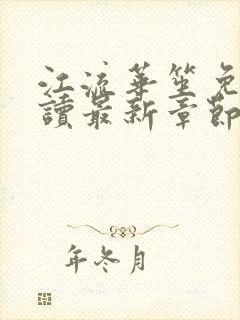 江流華笙免
讀最新章節
年冬月